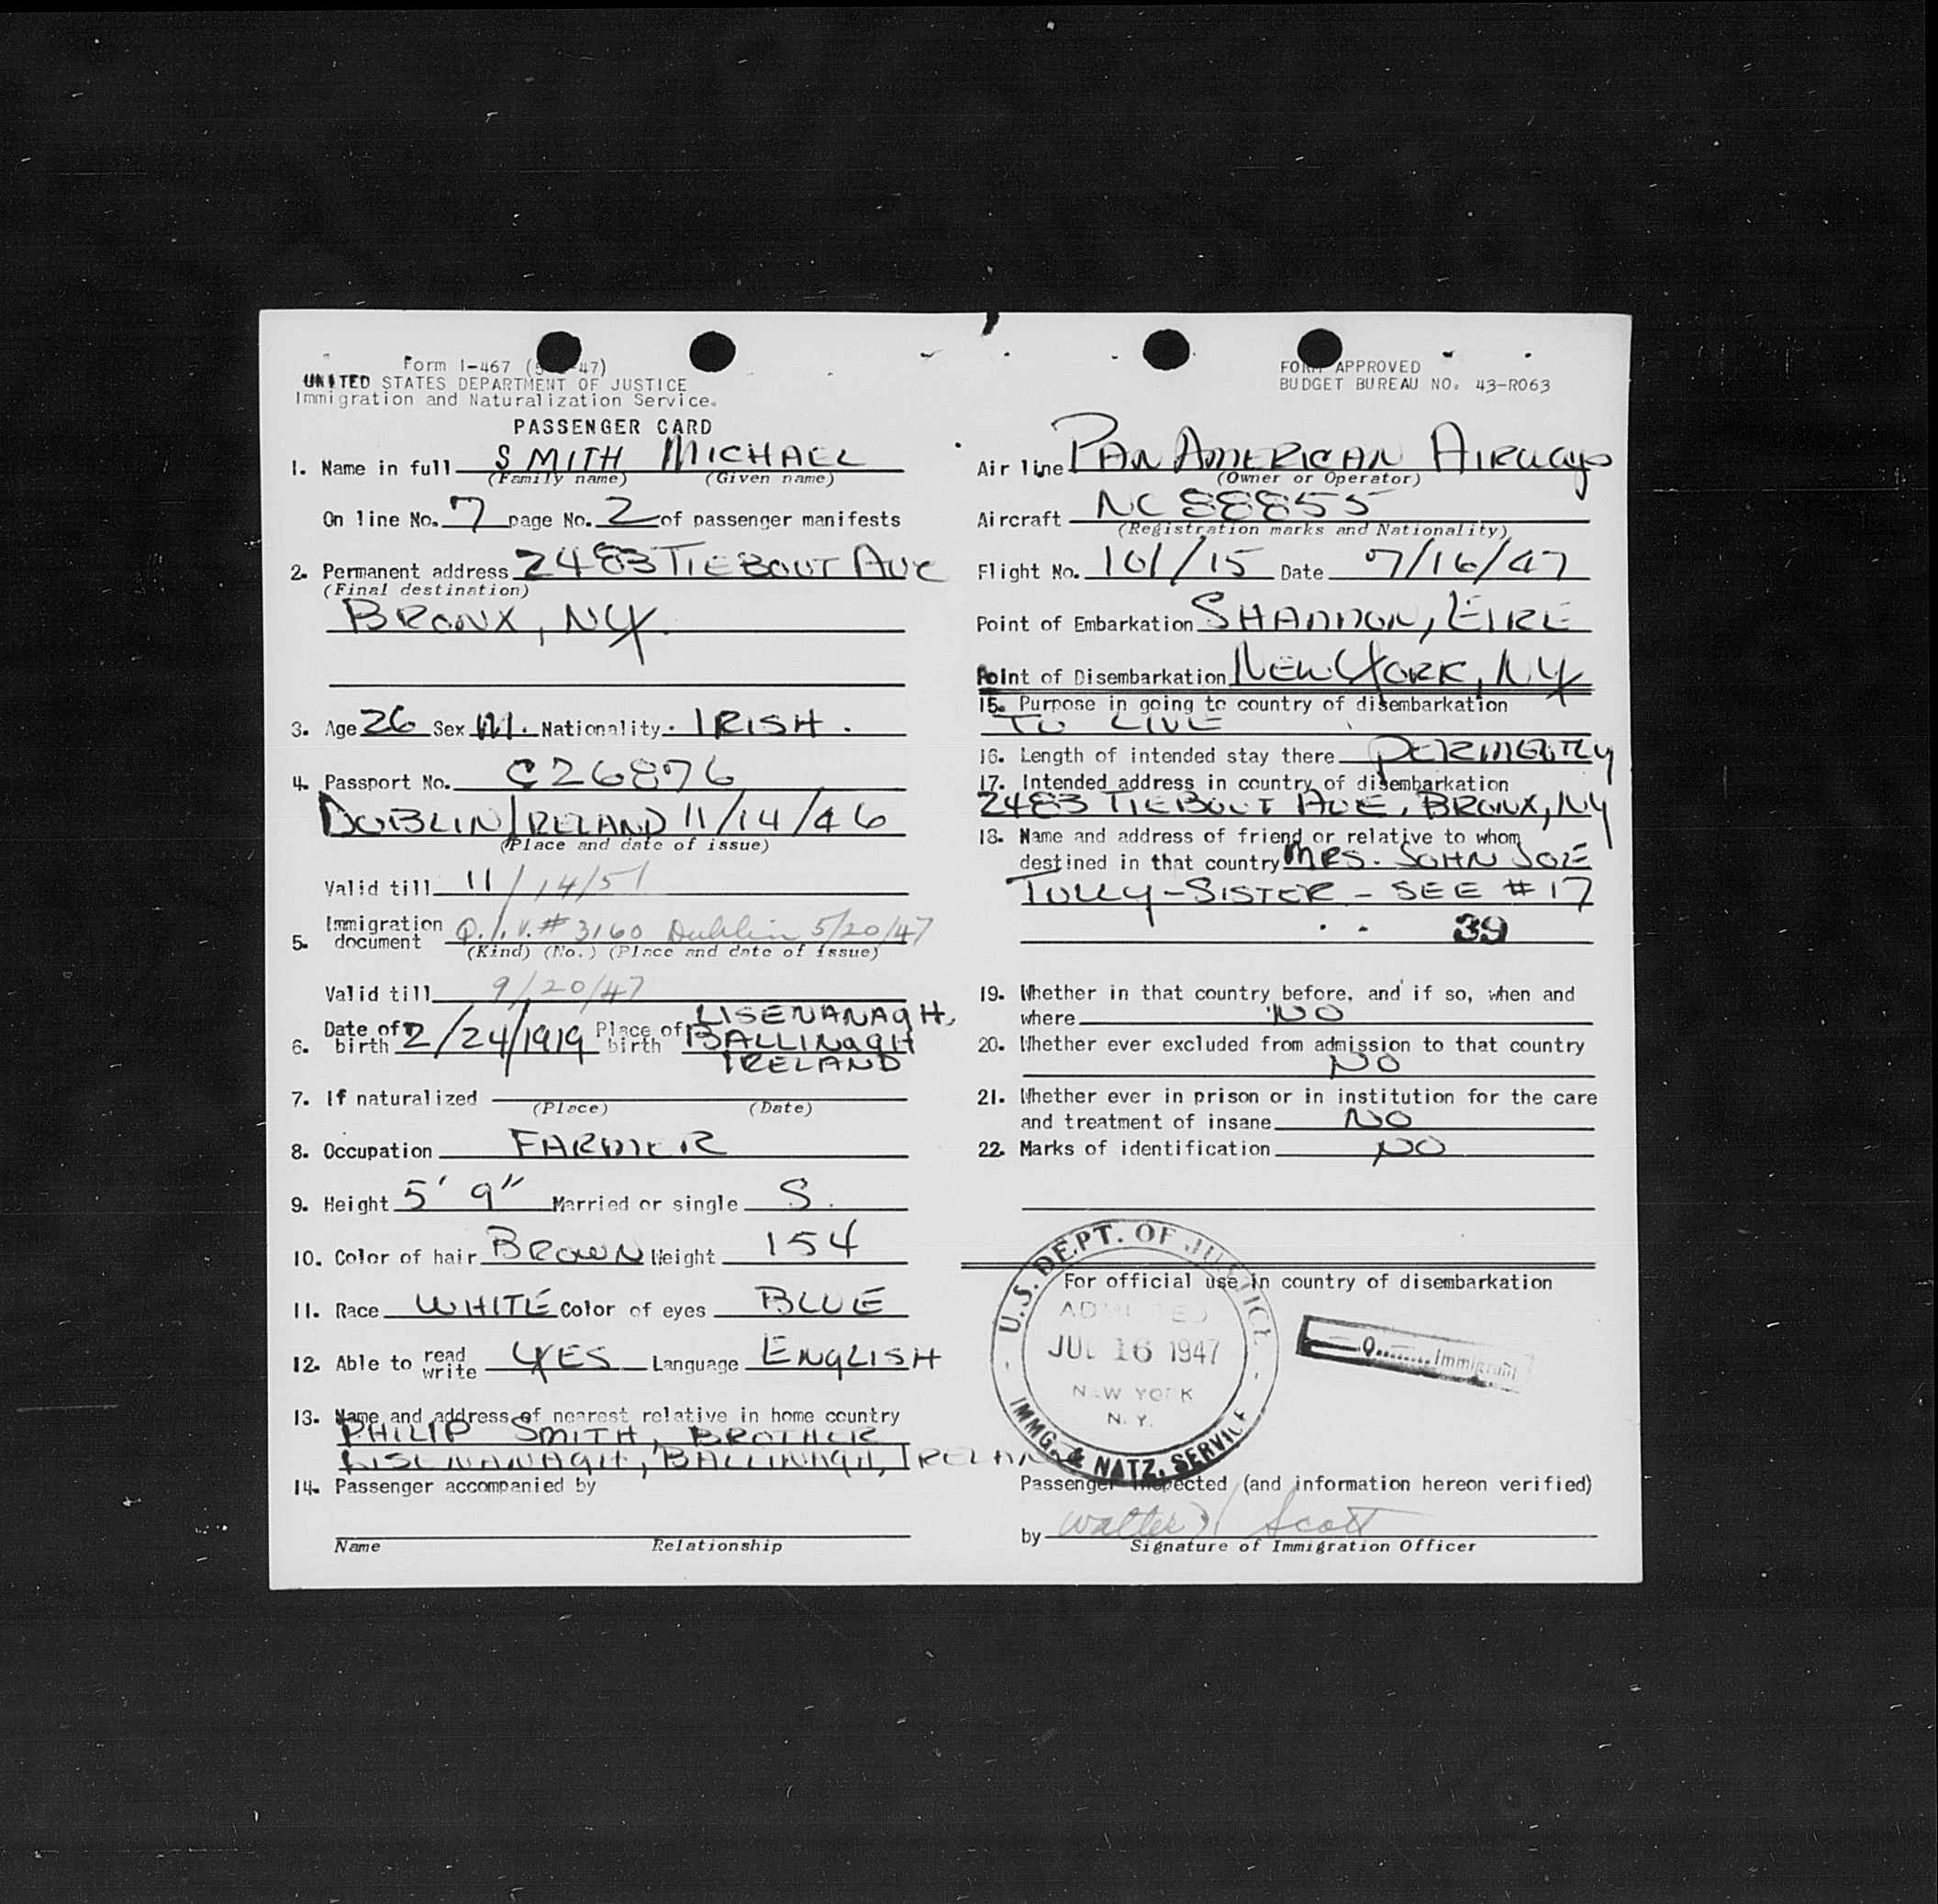 Form I-467 (5 47)
UNITED STATES DEPARTMENT OF JUSTICE
Immigration and Naturalization Service.
PASSENGER CARD
1. Name in full SMITH MICHAEL
(Family name) (Given name)
On line No. 7 page No. 2 of passenger manifests
2. Permanent address 2483 TIEBOUT AVE
(Final destination)
BRONX, NY.
3. Age 26 Sex M. Nationality. IRISH.
4. Passport No. C26876
DUBLIN IRELAND 11/14/46
(Place and date of issue)
Valid till 11/14/51
5. Immigration document Q.I.V. # 3160 Dublin 5/20/47
(Kind) (No.) (Place and date of issue)
Valid till 9/20/47
6. Date of birth 2/24/1919 Place of birth LISENANAGH,
BALLINAGH
IRELAND
7. If naturalized
(Place) (Date)
8. Occupation FARMER
9. Height 5' 9" Married or single S.
10. Color of hair BROWN Weight 154
11. Race WHITE Color of eyes BLUE
12. Able to read write YES Language ENGLISH
13. Name and address of nearest relative in home country
PHILIP SMITH, BROTHER
LISENANAGH, BALLINAGH, IRELAND
14. Passenger accompanied by
Name Relationship
FORM APPROVED
BUDGET BUREAU NO. 43-R063
Air line PAN AMERICAN AIRWAYS
(Owner or Operator)
Aircraft NC 88855
(Registration marks and Nationality)
Flight No. 101/15 Date 7/16/47
Point of Embarkation SHANNON, EIRE
Point of Disembarkation NEW YORK, NY
15. Purpose in going to country of disembarkation
TO LIVE
16. Length of intended stay there PERMENTLY
17. Intended address in country of disembarkation
2483 TIEBOUT AVE, BRONX, NY
18. Name and address of friend or relative to whom
destined in that country MRS. JOHN JOE
TULLY - SISTER - SEE # 17
39
19. Whether in that country before, and if so, when and
where NO
20. Whether ever excluded from admission to that country
NO
21. Whether ever in prison or in institution for the care
and treatment of insane NO
22. Marks of identification NO
For official use in country of disembarkation
U.S. DEPT. OF JUSTICE
ADMITTED
JUL 16 1947
NEW YORK
N.Y.
IMMG. & NATZ. SERVICE
Q........Immigrant
Passenger inspected (and information hereon verified)
by Walter H Scott
Signature of Immigration Officer